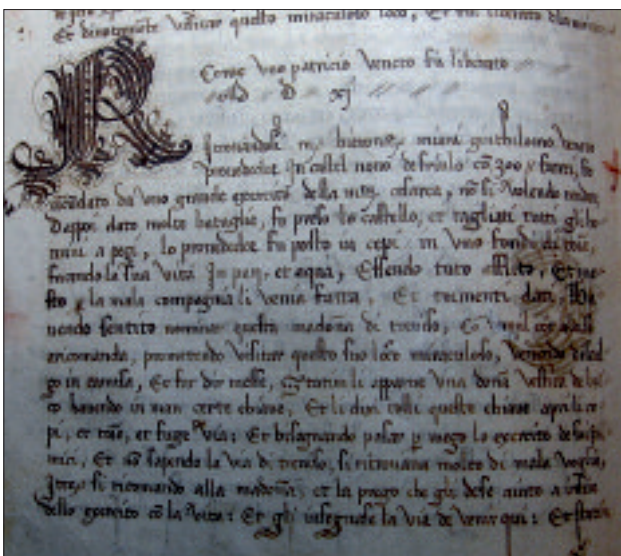 Et divotamente visitar questo miraculoso loco, Et
Come uno patricio Veneto fu liberato
M D XJ
Ritrovandosi m. hieronymo miani gentilhomo veneto
proveditor In castel novo de friulo cõ 300 fanti, fu
circondato da uno grande exercito della mtà cesarea, nõ si volendo render
Dappoi dato molte bataglie, fu preso lo castello, et tagliati tutti gli ho
mini a pezi, lo proveditor fu posto in cepi in uno fondo di torre,
facendo la sua vita In pan, et aqua, Essendo tuto afflicto, Et
sto p la mala compagnia li venia fatta, Et tormenti dati, Ha
vendo sentito nominar questa madona di treviso, Cõ humel cor a essa
ricomanda, promettendo visitar questo suo loco miraculoso, venendo discal
zo in camisa, Et far dir messe, Et statim li apparve una dona vestita de bian
co havendo in man certe chiave, Et li dice tolli queste chiave apri li ce
pi, et torre, et fuge via: Et bisognando passar p mezo lo exercito de suoi
inimici, Et nõ sapendo la via di treviso, si ritrovava molto di mala voglia,
Iterum si ricomando alla madona, et la prego che gli desse aiuto a uscir
dello exercito cõ la vita: Et gli insegnasse la via de venir qui: Et statim